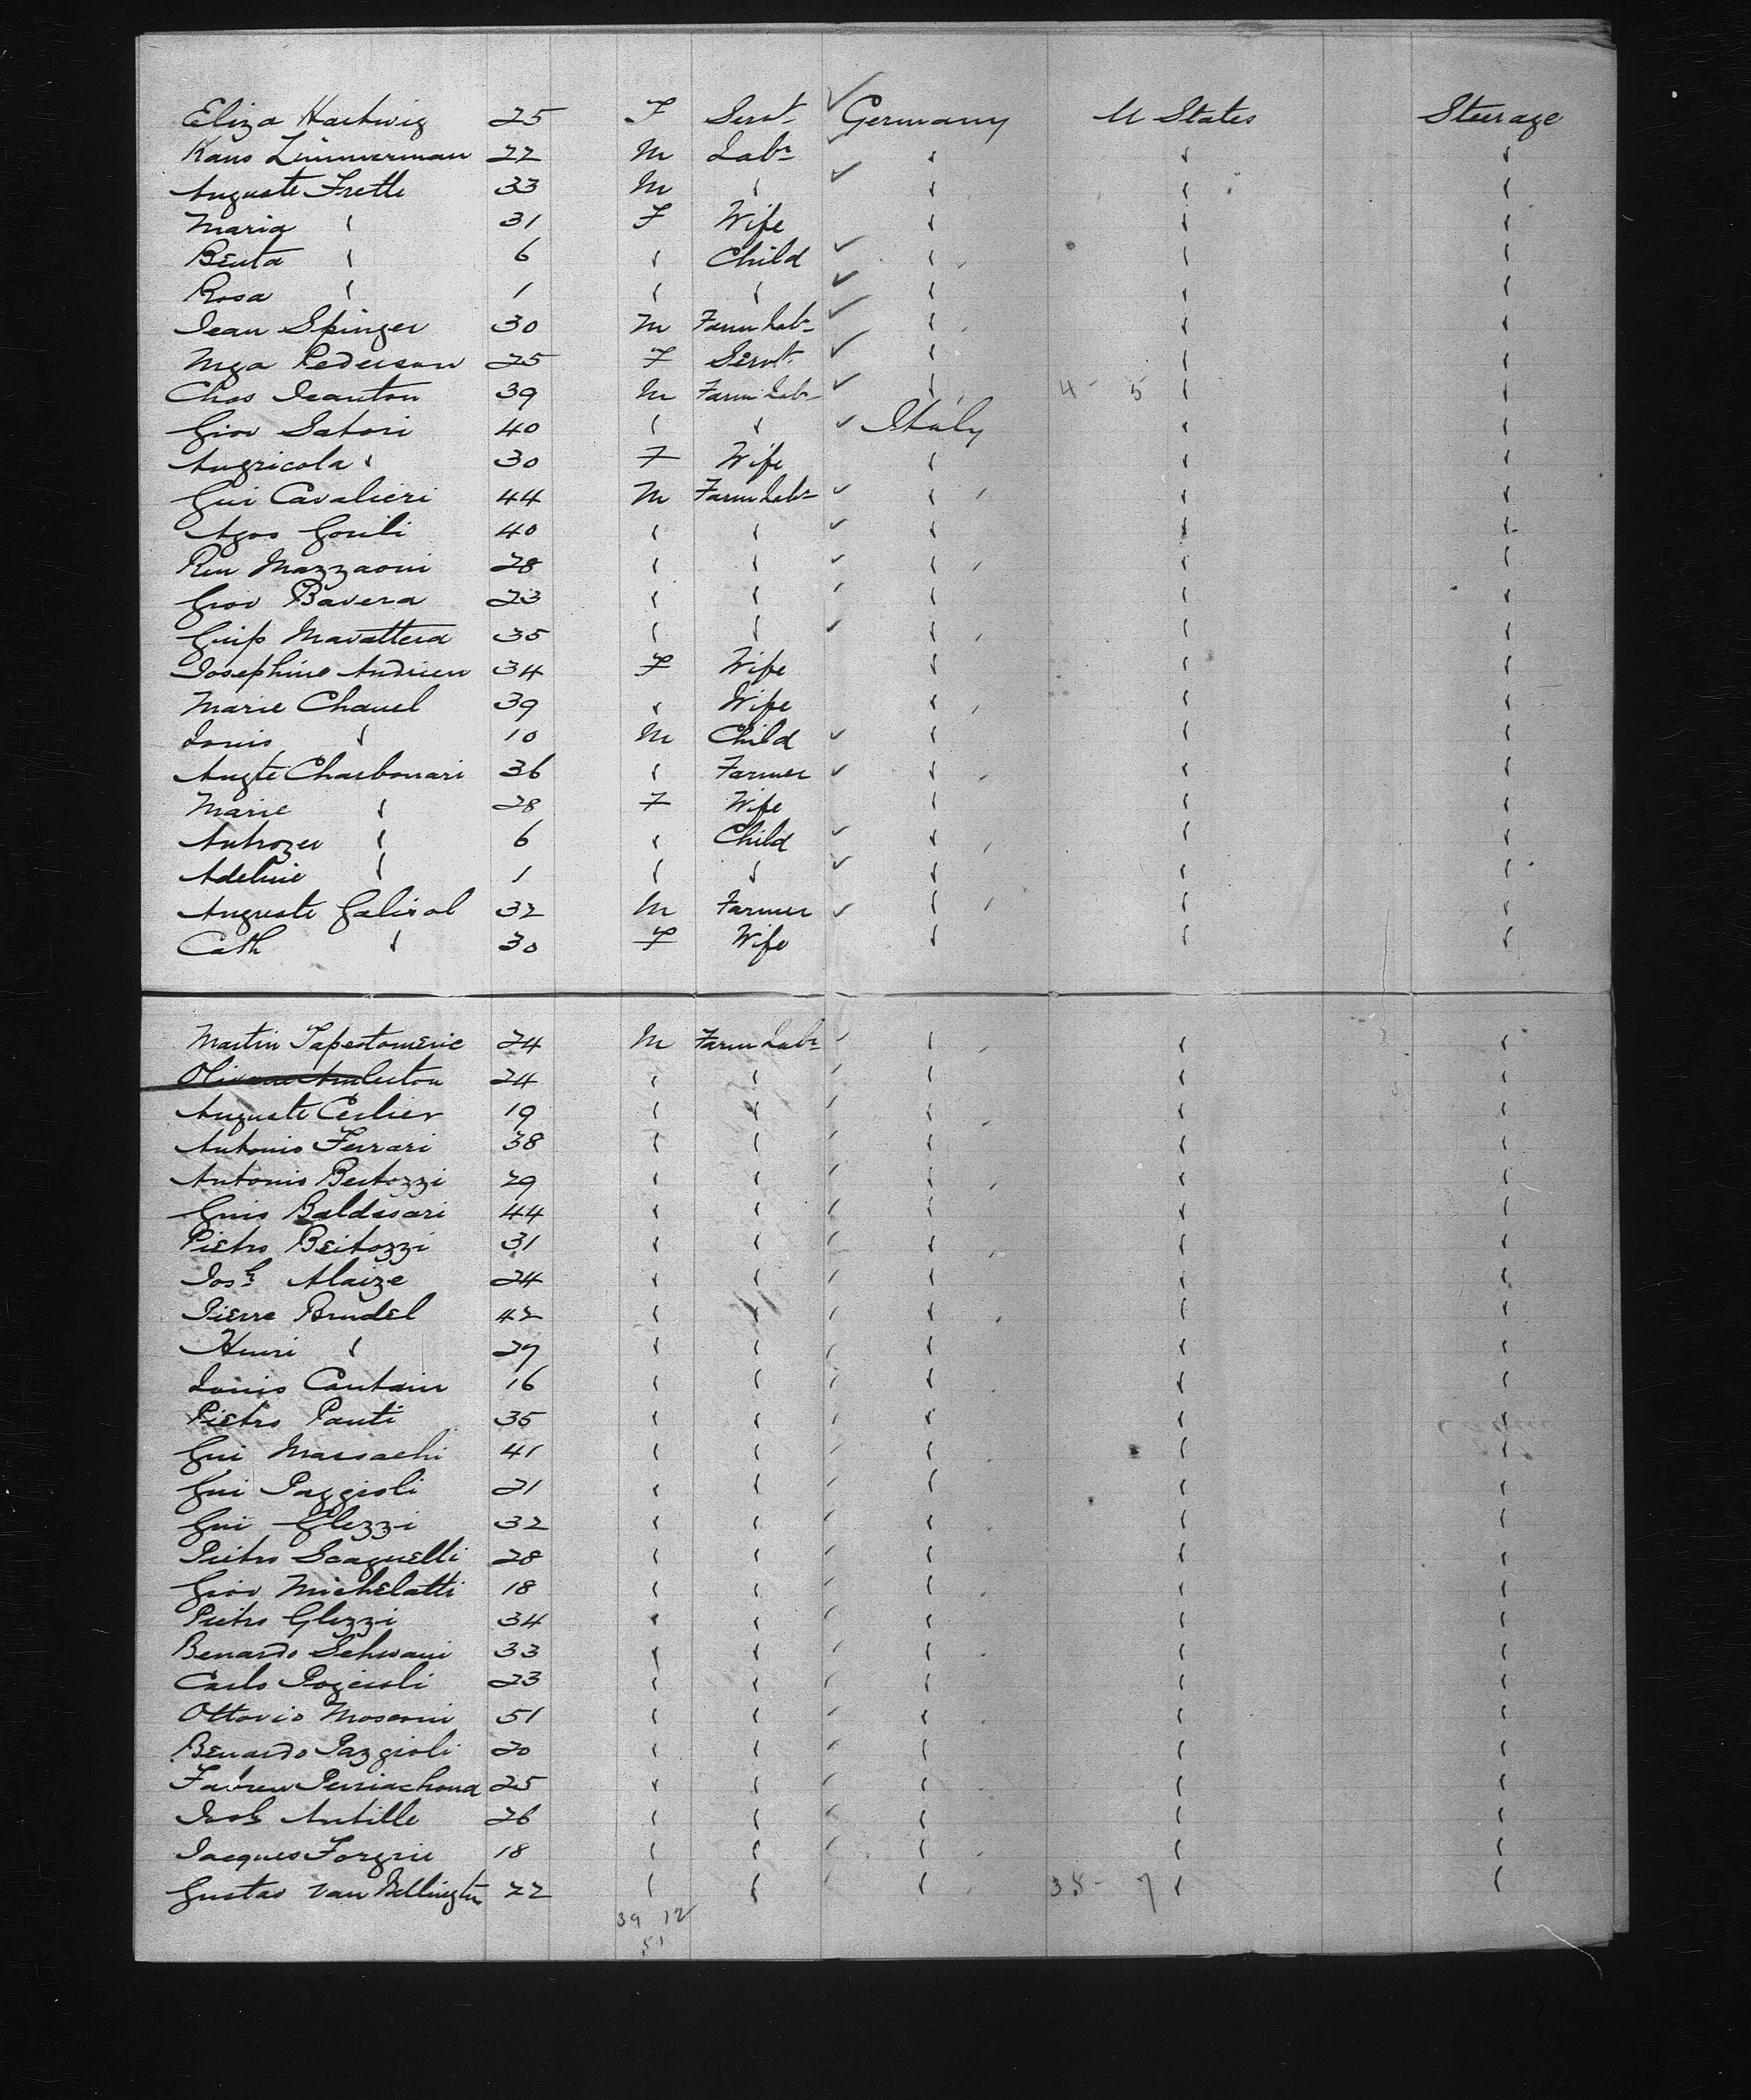 Eliza Hartwig 25 F Servt Germany U States Steerage
Hans Zimmerman 22 M Labr " " "
Auguste Frette 33 M " " " "
Maria " 31 F Wife " " "
Benta " 6 " Child " " "
Rosa " 1 " " " " "
Jean Spinger 30 M Farm Labr " " "
Inga Pederson 25 F Servt " " "
Chas Jeanton 39 M Farm Labr " 4 - 5 " "
Giov Satori 40 " " Italy " "
Angricola " 30 F Wife " " "
Gui Cavalieri 44 M Farm Labr " " "
Agos Gorili 40 " " " " "
Ren Mazzaoni 28 " " " " "
Giov Bavera 23 " " " " "
Guip Mavattera 35 " " " " "
Josephine Andrien 34 F Wife " " "
Marie Chauel 39 " Wife " " "
Louis " 10 M Child " " "
Augte Charbonari 36 " Farmer " " "
Marie " 28 F Wife " " "
Antrozer " 6 " Child " " "
Adeline " 1 " " " " "
Auguste Galisol 32 M Farmer " " "
Cath " 30 F Wife " " "
Martin Tapestomerie 24 M Farm Labr " " "
24 " " " " "
Auguste Cerlier 19 " " " " "
Antonio Ferrari 38 " " " " "
Antonio Bertozzi 29 " " " " "
Guis Baldasari 44 " " " " "
Pietro Beitozzi 31 " " " " "
Josh Alaize 24 " " " " "
Pierre Brudel 42 " " " " "
Henri " 27 " " " " "
Louis Cantain 16 " " " " "
Pietro Panti 35 " " " " "
Gui Massachi 41 " " " " "
Gui Paggioli 21 " " " " "
Gui Glezzi 32 " " " " "
Pietro Scagnelli 28 " " " " "
Giov Michelatti 18 " " " " "
Pietro Glezzi 34 " " " " "
Benardo Schwani 33 " " " " "
Carlo Pogcioli 23 " " " " "
Ottovio Mosconi 51 " " " " "
Benardo Pazgioli 20 " " " " "
25 " " " " "
Josh Antille 26 " " " " "
Jacques Forgrie 18 " " " " "
Gustav Van Bellingten 22 " " " 38 - 7 " "
39 12
51